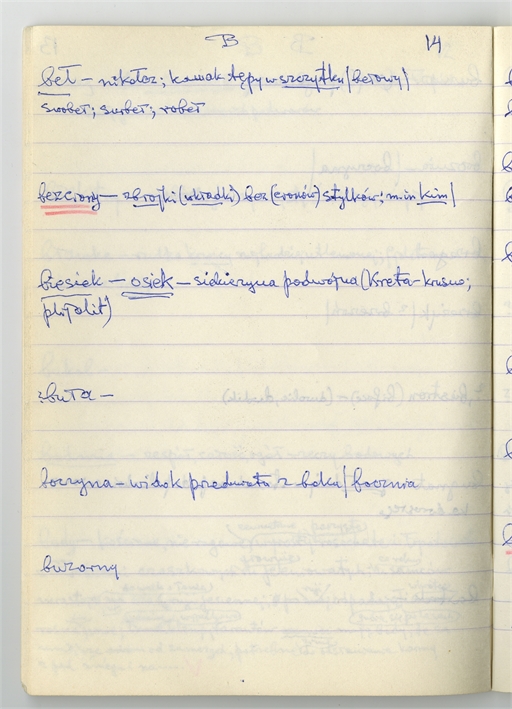 B 14
bet – nikłosz; kawałk tępy w szczytku / betowy /
swobet; surbet; robet
bezciony – zbrojki (układki) bez (cionów) stylków; min kim /
biesiek – osiek – siekieryna podwójna (Kreta-
?buta –
boczyna – widok przedmiotu z boku / bocznia
buzorny